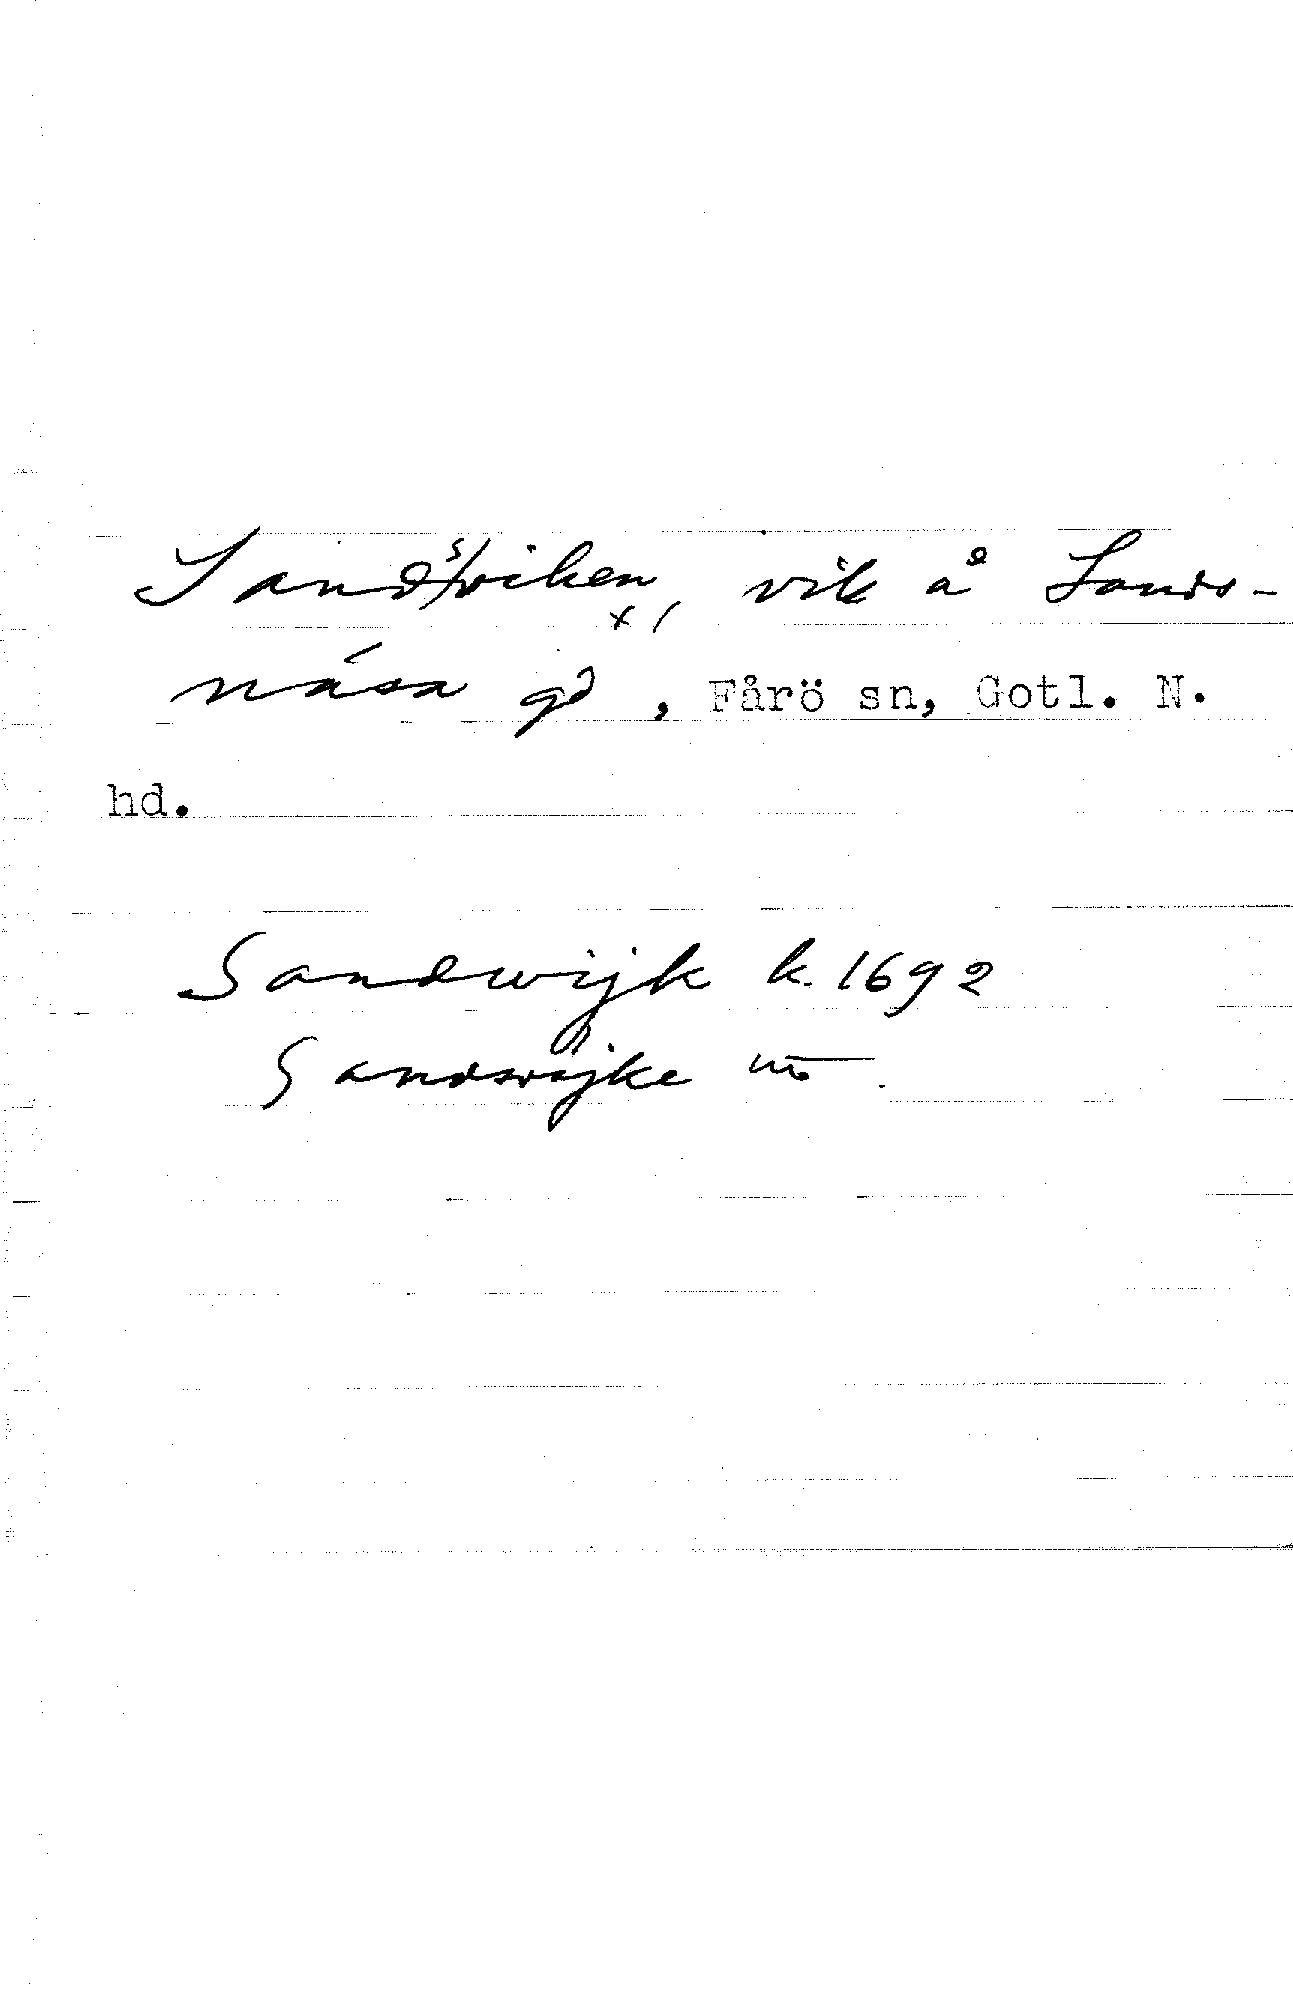 Sandsviken, vik å Lands-
x/
näsa gd, Fårö sn, Gotl. N.
hd.
Sandwijk k. 1692
Sandswijke